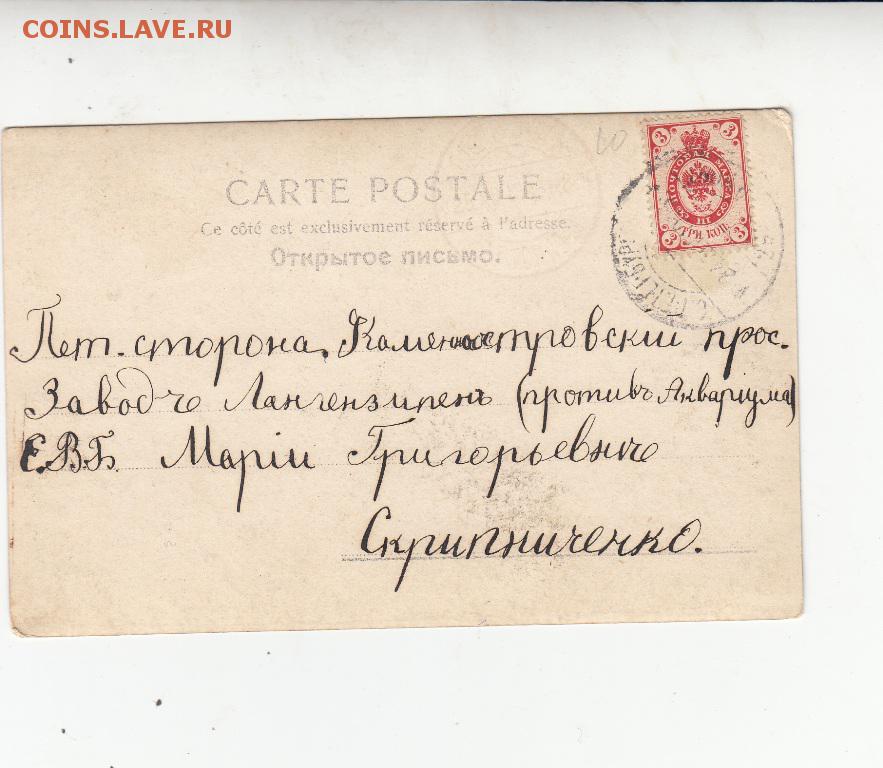 COINS.LAVE.RU
10
3 3
ПОЧТОВАЯ МАРКА
3 ТРИ КОП. 3
CARTE POSTALE
Ce côté est exclusivement réservé à l'adresse.
Открытое письмо.
Пет. сторона. Каменностровскiй прос.
Заводъ Лангензипенъ (противъ Акварiума)
Е.В.Б. Марiи Григорьевнѣ
Скрипниченко.